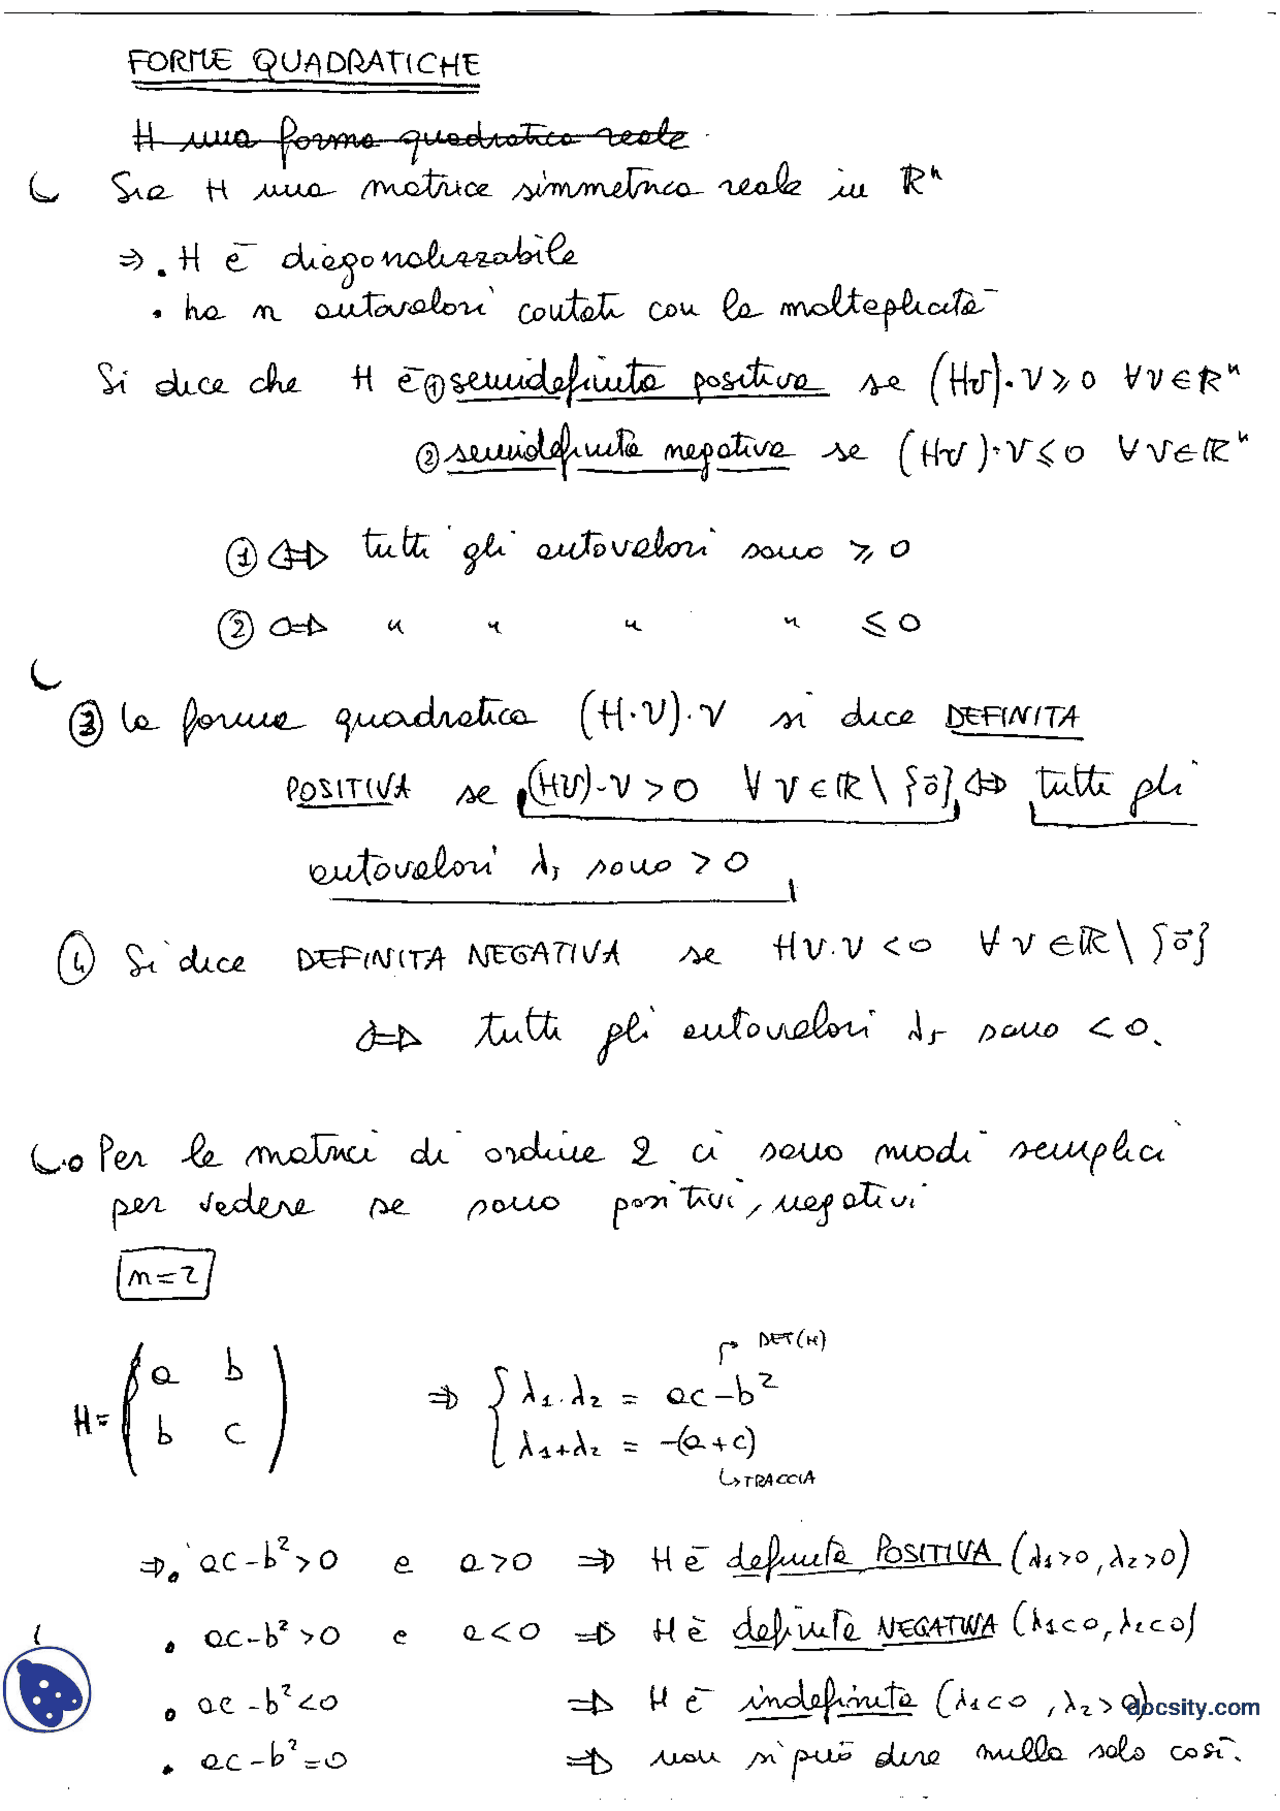 FORME QUADRATICHE
H una forma quadratica reale
Sia H una matrice simmetrica reale in ℝⁿ
⇒ • H è diagonalizzabile
• ha n autovalori contati con la molteplicità
Si dice che H è ① semidefinita positiva se (Hv)·v ≥ 0 ∀v∈ℝⁿ
② semidefinita negativa se (Hv)·v ≤ 0 ∀v∈ℝⁿ
① ⇔ tutti gli autovalori sono ≥ 0
② ⇔ " " " " ≤ 0
③ la forma quadratica (H·v)·v si dice DEFINITA
POSITIVA se (Hv)·v > 0 ∀v∈ℝ\{0⃗} ⇔ tutti gli
autovalori λᵢ sono > 0
④ Si dice DEFINITA NEGATIVA se Hv·v < 0 ∀v∈ℝ\{0⃗}
⇔ tutti gli autovalori λᵢ sono < 0.
• Per le matrici di ordine 2 ci sono modi semplici
per vedere se sono positivi, negativi
n=2
DET(H)
H = (a b
b c)
⇒ { λ₁·λ₂ = ac-b²
λ₁+λ₂ = -(a+c)
↳ TRACCIA
⇒ • ac-b²>0 e a>0 ⇒ H è definita POSITIVA (λ₁>0, λ₂>0)
• ac-b²>0 e a<0 ⇒ H è definita NEGATIVA (λ₁<0, λ₂<0)
• ac-b²<0 ⇒ H è indefinita (λ₁<0, λ₂>0)
docsity.com
• ac-b²=0 ⇒ non si può dire nulla solo così.